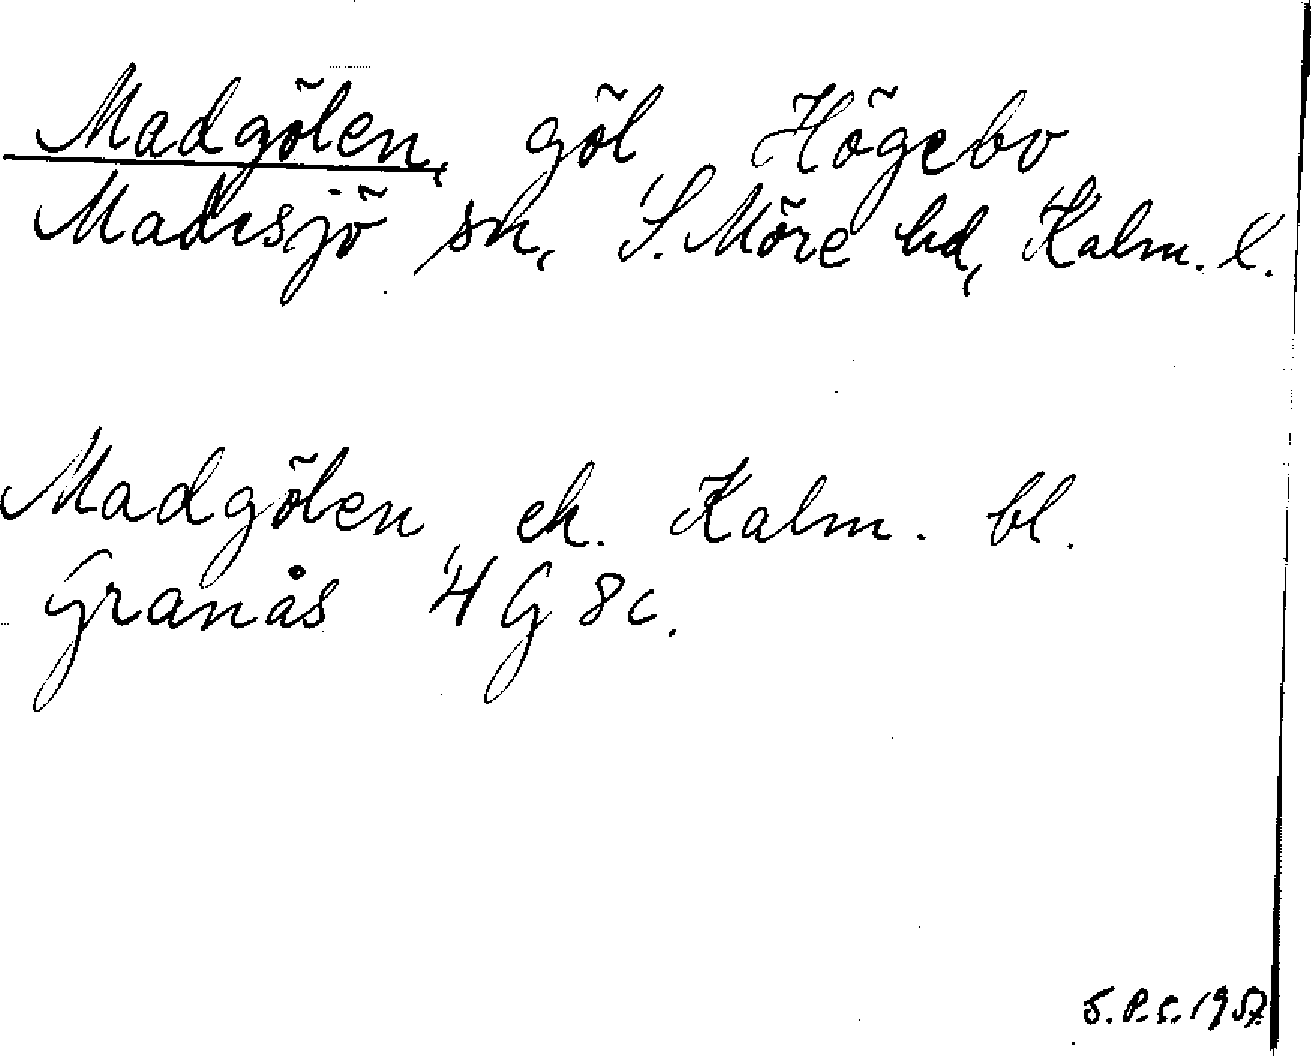 Madgölen, göl Högebo
Madesjö sn, S. Möre hd, Kalm. l.
Madgölen ek. Kalm. bl.
Granås 4G 8c.